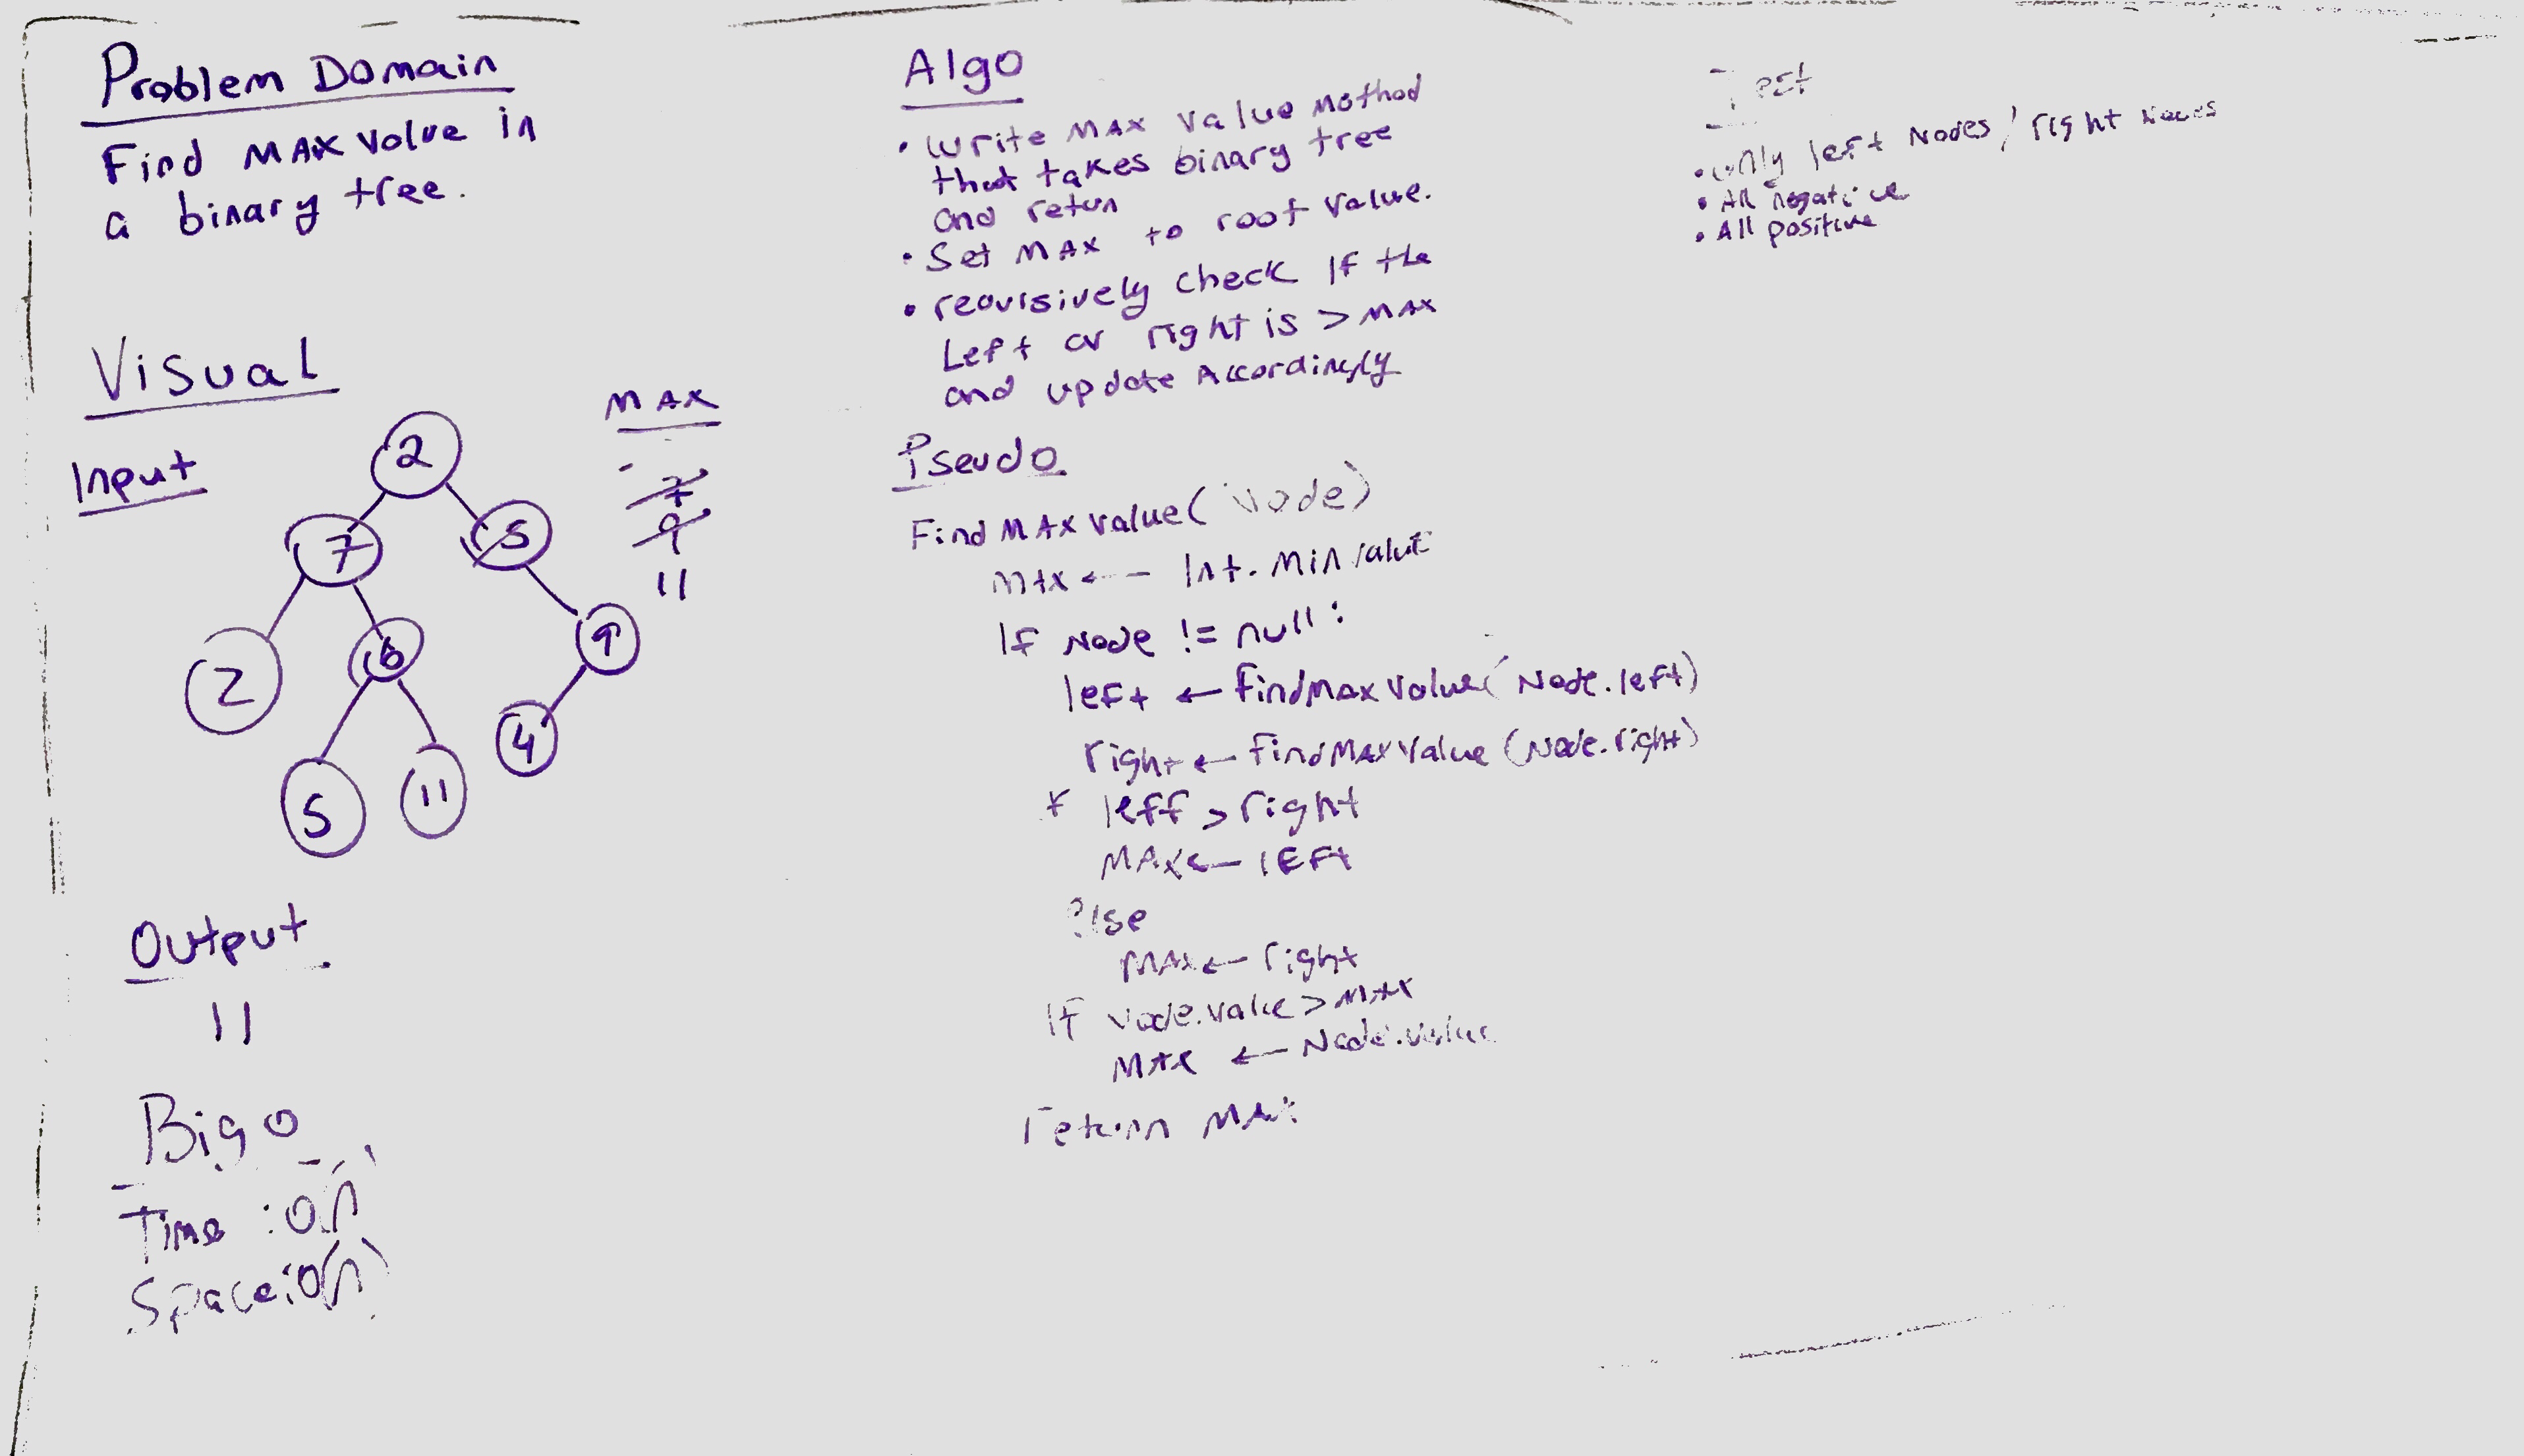 Problem Domain
Find MAX value in
a binary tree.
Visual
Input
MAX
2
7
5
2
6
9
5
11
4
7
9
11
Output
11
Big O
Time : O(n)
Space : O(n)
Algo
• Write MAX Value Method
that takes binary tree
and retun
• Set MAX to root value.
• recursively check If the
Left or right is > MAX
and update Accordingly
Pseudo
Find MAX value( Node)
MAX ← Int. Min value
If Node != null :
left ← findMax Value( Node.left)
right ← findMAX Value (Node.right)
left > right
MAX ← lEFt
else
MAX ← right
If Node.value > MAX
MAX ← Node.value
return MAX
Test
• Only left Nodes / right Nodes
• All negative
• All positive